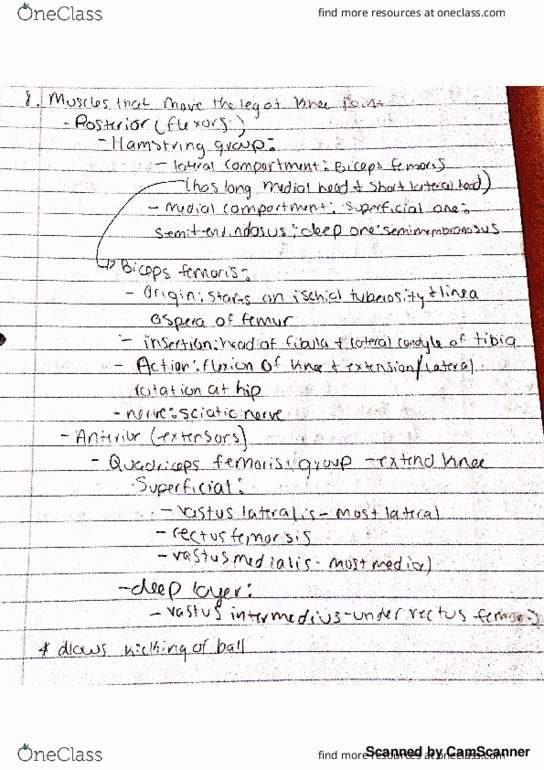 OneClass
find more resources at oneclass.com
8. Muscles that move the leg at knee joint
- Posterior (flexors)
- Hamstring group:
- lateral compartment: Biceps femoris
(has long medial head + short lateral head)
- medial compartment: superficial one:
semitendindosus; deep one: semimembranosus
Biceps femoris:
- Origin: starts on ischial tuberosity + linea
aspera of femur
- insertion: head of fibula + lateral condyle of tibia
- Action: flexion of knee + extension/lateral
rotation at hip
- nerve: sciatic nerve
- Anterior (extensors)
- Quadriceps femoris: group - extend knee
Superficial:
- vastus lateralis - most lateral
- rectus femorsis
- vastus medialis - most medial
- deep layer:
- vastus intermedius - under rectus femoris
* allows kicking of ball
OneClass
find more resources at oneclass.com
Scanned by CamScanner